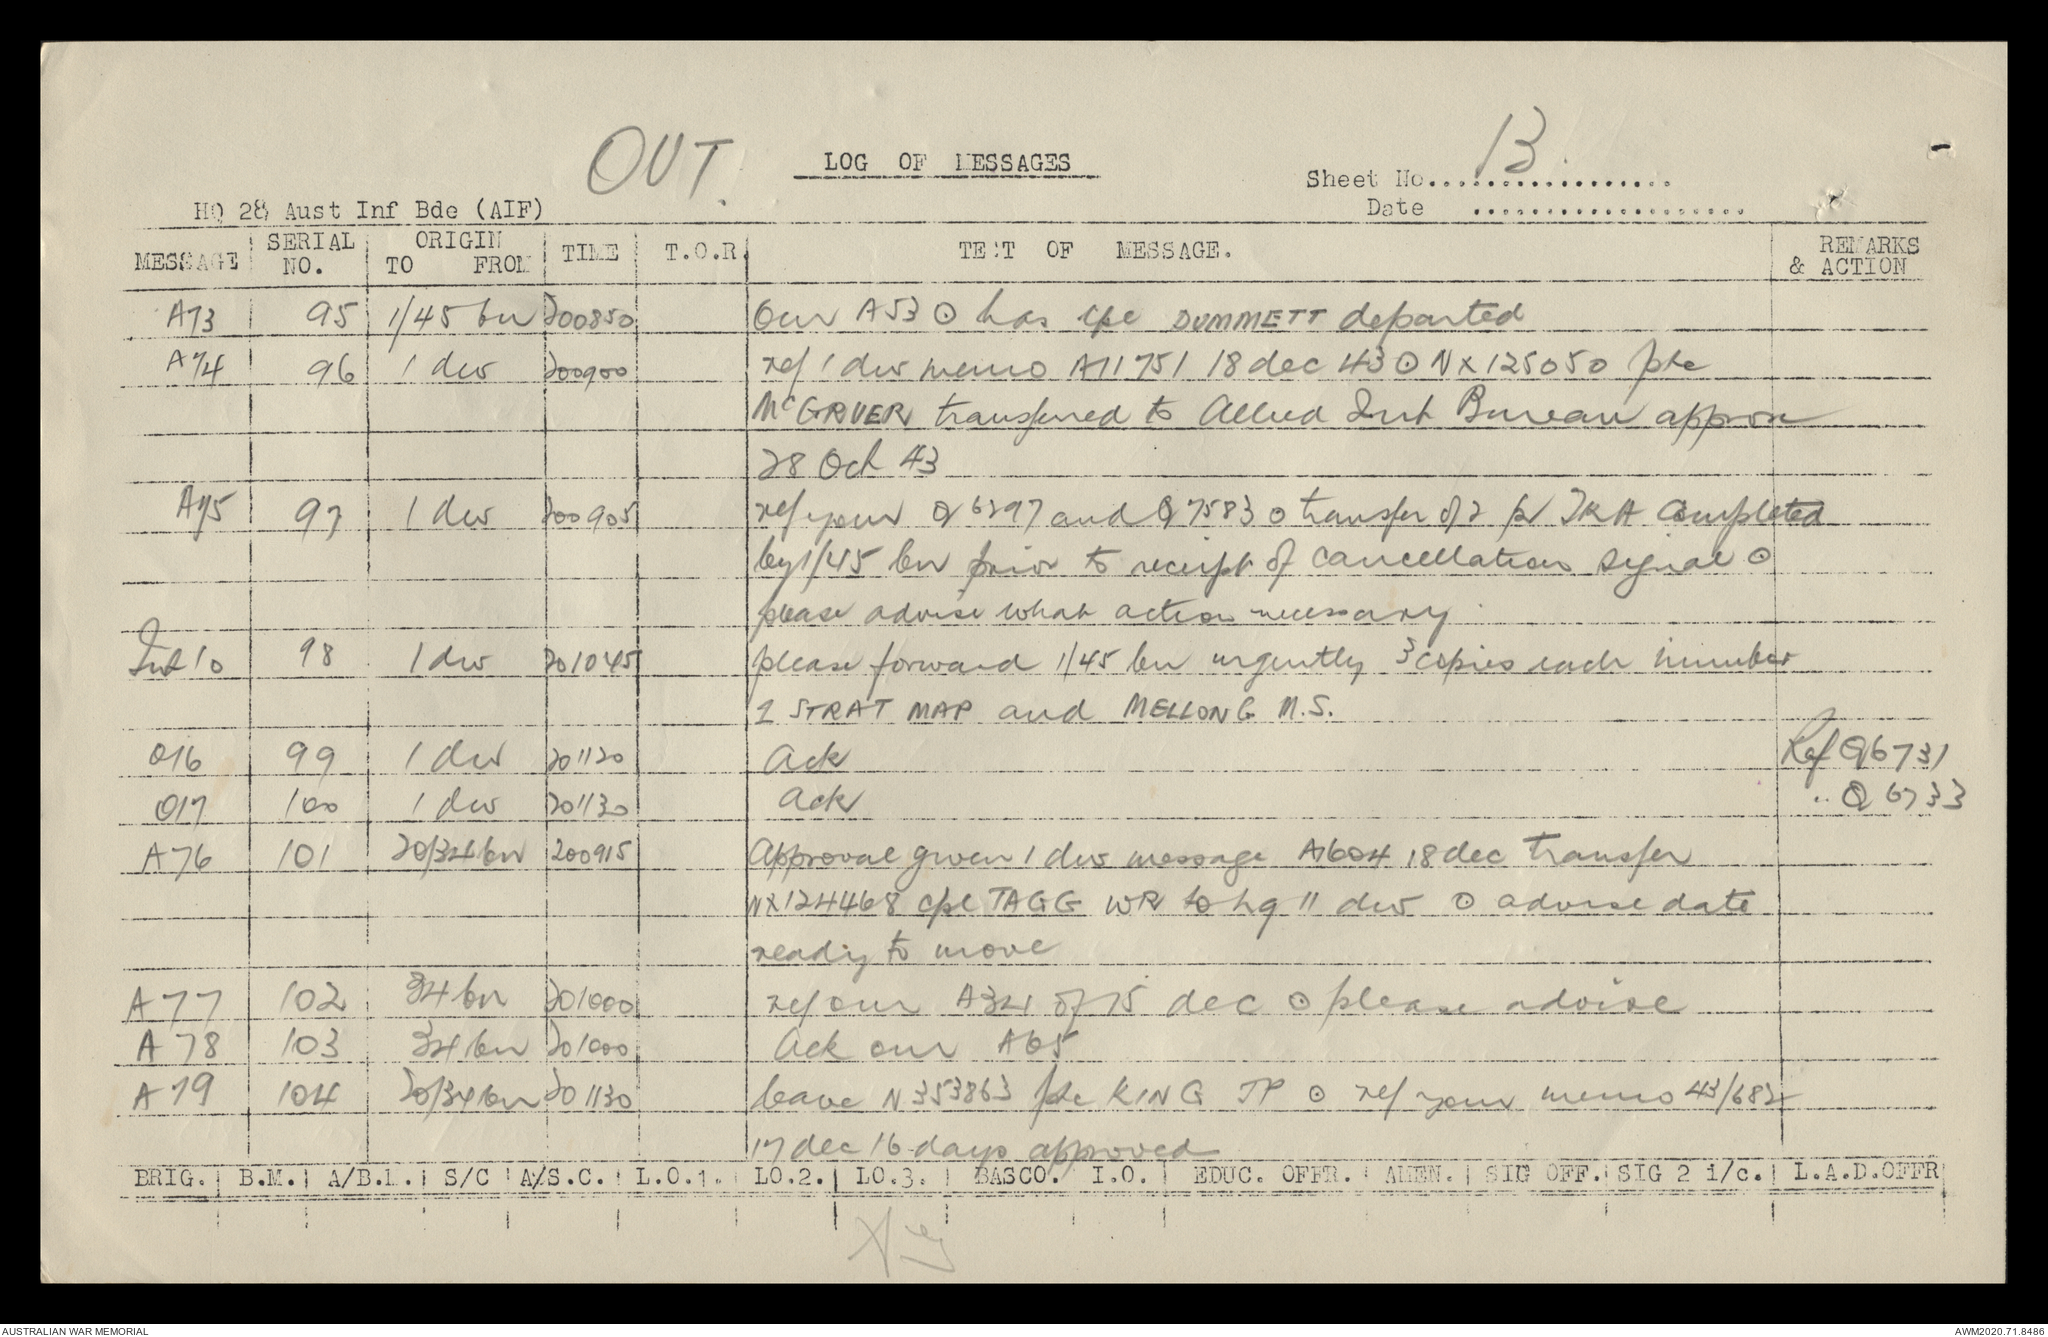 OUT.
LOG OF MESSAGES
Sheet No. 13.
Date
HQ 28 Aust Inf Bde (AIF)
MESSAGE SERIAL NO. ORIGIN TO FROM TIME T.O.R. TEXT OF MESSAGE. REMARKS & ACTION
A73 95 1/45 bn 200850 Our A53 ⊙ has cpl DUMMETT departed
A74 96 1 div 200900 ref 1 div memo A11751 18 dec 43 ⊙ NX125050 pte
McGRUER transferred to Allied Int Bureau approx
28 Oct 43
A75 97 1 div 200905 ref your Q6297 and Q7583 ⊙ transfer of 2 pr TRA completed
by 1/45 bn prior to receipt of cancellation signal ⊙
please advise what action necessary
Int 10 98 1 div 201045 please forward 1/45 bn urgently 3 copies each number
1 STRAT MAP and MELLONG M.S.
O16 99 1 div 201120 Ack Ref Q6731
O17 100 1 div 201130 Ack .. Q6733
A76 101 20/34 bn 200915 Approval given 1 div message A1604 18 dec transfer
NX124468 cpl TAGG WR to hq 11 div ⊙ advise date
ready to move
A77 102 34 bn 201000 ref our A34 of 15 dec ⊙ please advise
A78 103 34 bn 201000 Ack our A65
A79 104 20/34 bn 201130 leave N353863 pte KING JP ⊙ ref your memo 43/682
17 dec 16 days approved
BRIG. B.M. A/B.M. S/C A/S.C. L.O.1. LO.2. LO.3. BASCO. I.O. EDUC. OFFR. AMEN. SIG OFF. SIG 2 i/c. L.A.D.OFFR
AUSTRALIAN WAR MEMORIAL
AWM2020.71.8486